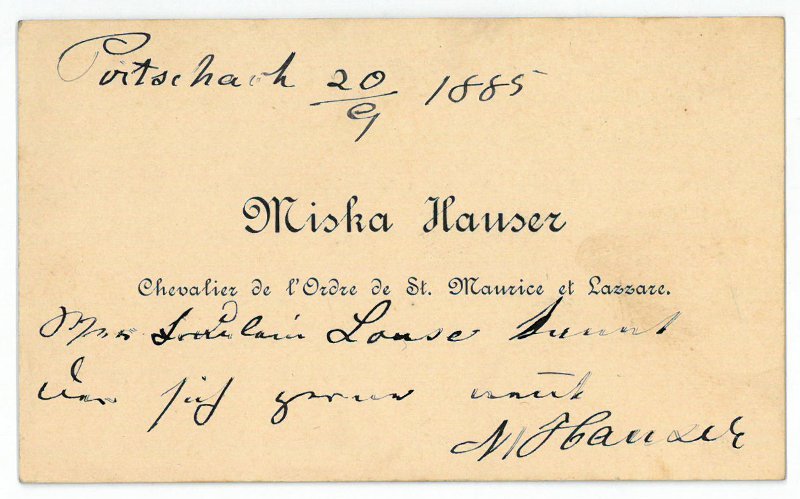 Pörtschach 20/9 1885
Miska Hauser
Chevalier de l'Ordre de St. Maurice et Lazzare.
Wer Fräulein Louse kennt
der sich gerne nennt
M Hauser